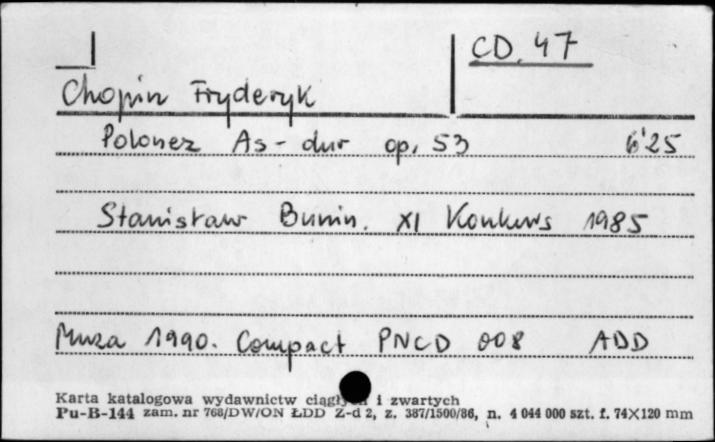 CD. 47
Chopin Fryderyk
Polonez As-dur op. 53 6'25
Stanisław Bunin. XI Konkurs 1985
Muza 1990. Compact PNCD 008 ADD
Karta katalogowa wydawnictw ciągłych i zwartych
Pu-B-144 zam. nr 768/DW/ON ŁDD Z-d 2, z. 387/1500/86, n. 4 044 000 szt. f. 74X120 mm